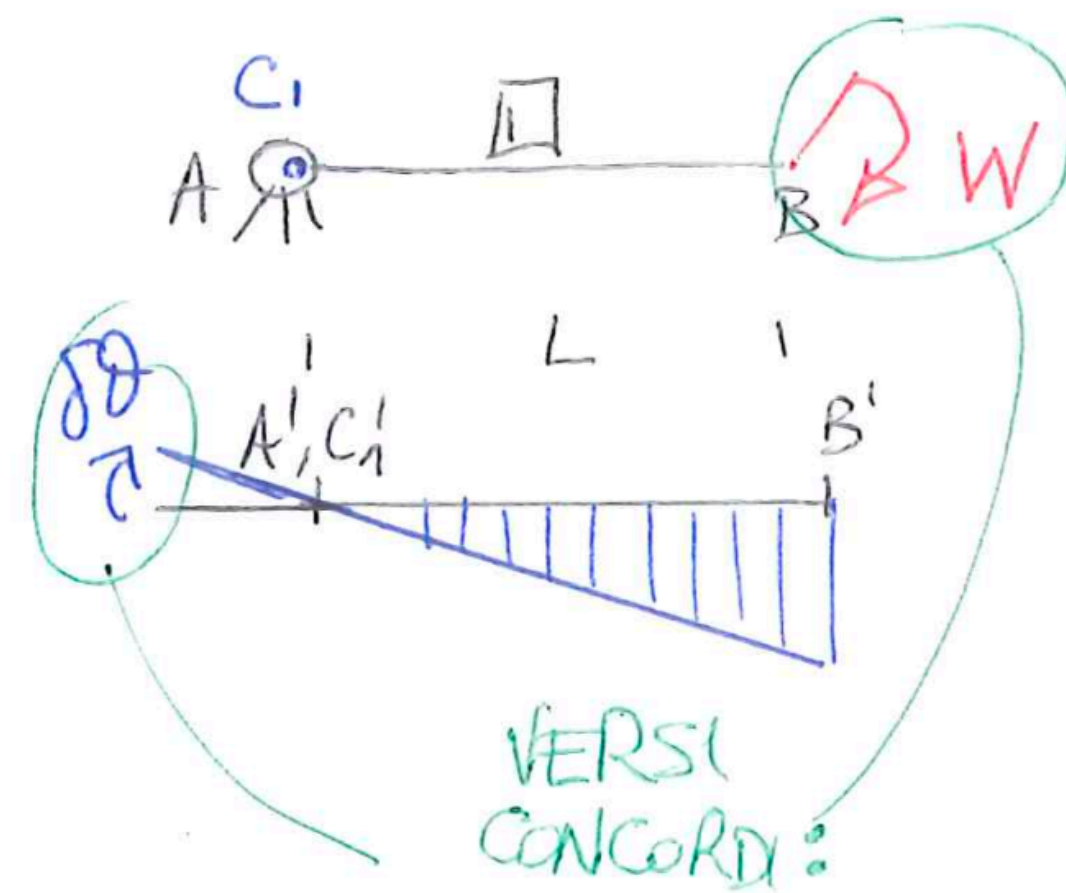 C1
A
I
B
W
L
δϑ
A', C1'
B'
VERSI
CONCORDI: